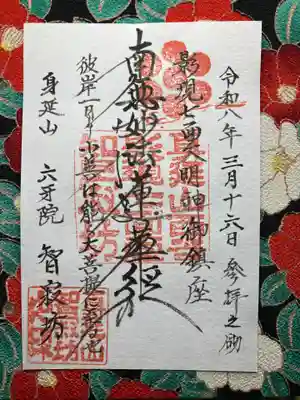 令和八年三月十六日 参拝之砌
影現七面大明神御鎮座
南無妙法蓮華経
彼岸一日の小善は能く大菩提に至る也
身延山 六牙院 智寂坊